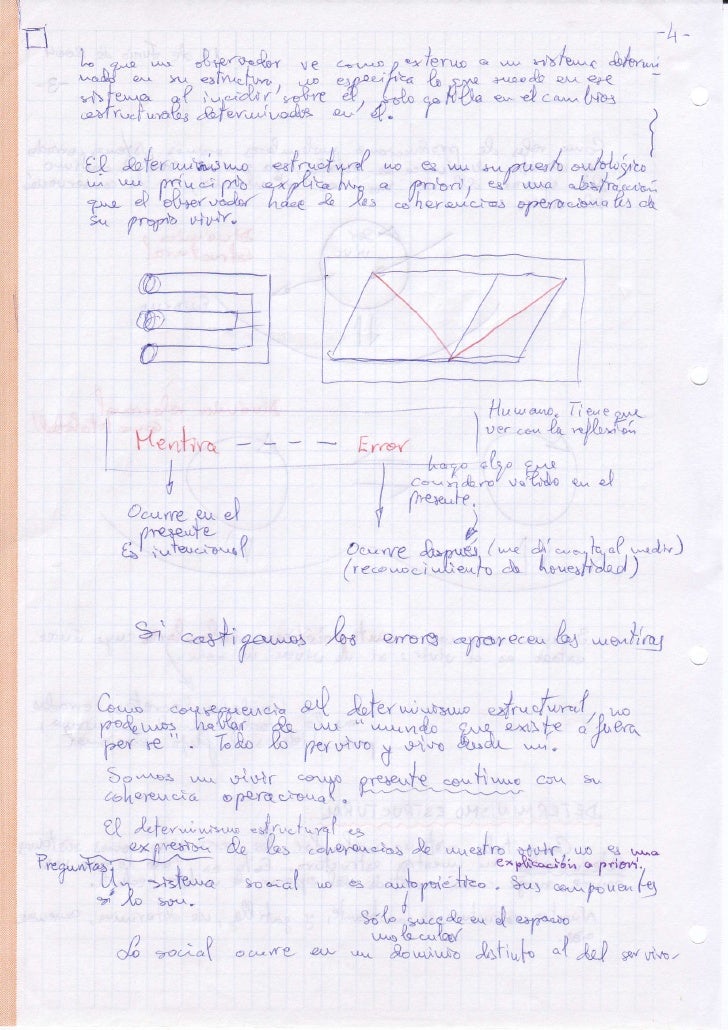 -4-
Lo que un observador ve como externo a un sistema determi
nado en su estructura, no especifica lo que sucede en ese
sistema al incidir sobre él, sólo gatilla en él cambios
estructurales determinados en él.
El determinismo estructural no es un supuesto ontológico
ni un principio explicativo a priori, es una abstracción
que el observador hace de las coherencias operacionales de
su propio vivir.
Humano. Tiene que
ver con la reflexión
Mentira - - - - Error
hago algo que
considero válido en el
presente.
Ocurre en el
presente
Es intencional
Ocurre después (me di cuenta al medir)
(reconocimiento de honestidad)
Si castigamos los errores aparecen las mentiras
Como consecuencia del determinismo estructural, no
podemos hablar de un "mundo que existe afuera
per se". Todo lo pervivo y vivo desde un.
Somos un vivir como presente continuo con su
coherencia operacional.
El determinismo estructural es
expresión de las coherencias de nuestro vivir, no es una
explicación a priori.
Preguntas:
Un sistema social no es autopoiético. Sus componentes
si lo son.
Sólo sucede en el espacio
molecular
Lo social ocurre en un dominio distinto al del ser vivo.